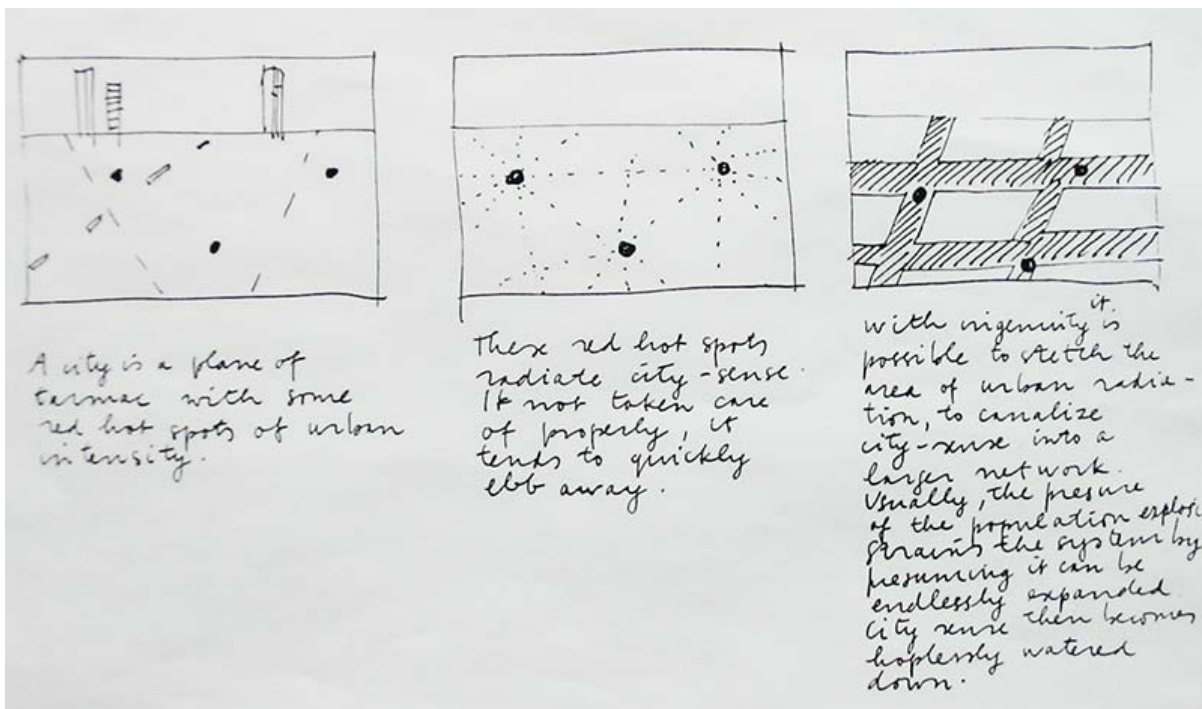 A city is a plane of
tarmac with some
red hot spots of urban
intensity.
These red hot spots
radiate city-sense.
If not taken care
of properly, it
tends to quickly
ebb away.
With ingenuity it is
possible to stetch the
area of urban radia-
tion, to canalize
city-sense into a
larger network.
Usually, the presure
of the population explosi
strains the system by
presuming it can be
endlessly expanded.
City sense then becomes
hoplessly watered
down.